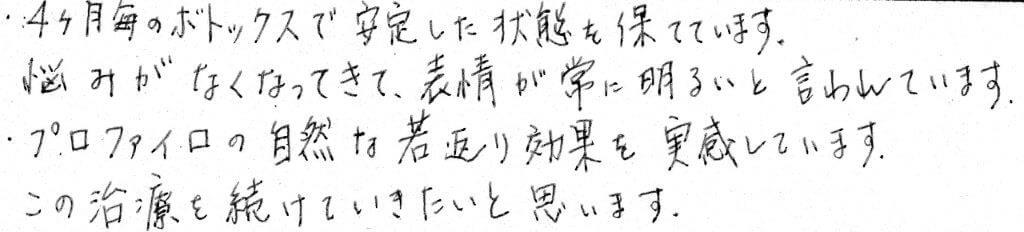 ・4ヶ月毎のボトックスで安定した状態を保てています。
悩みがなくなってきて、表情が常に明るいと言われています。
・プロファイロの自然な若返り効果を実感しています。
この治療を続けていきたいと思います。